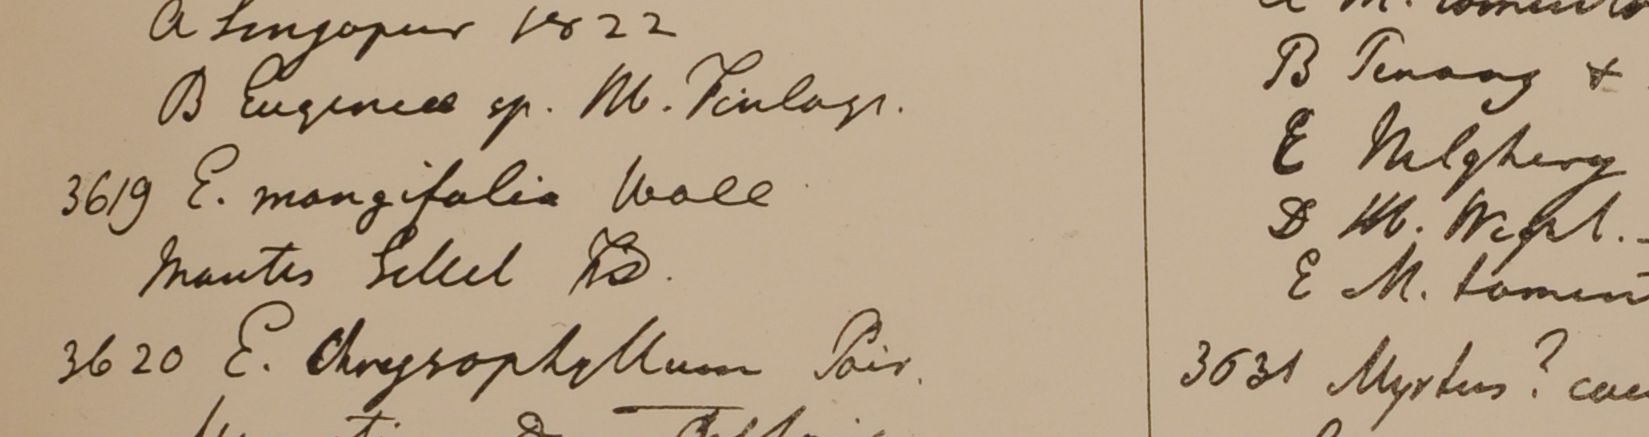 a Singapur 1822
B Eugeniae sp. M. Finlays.
3619 E. mangifolia Wall
Montes Sillet FD.
3620 E. Chrysophyllum Poir.
B Penang +
E Nilghery
D M. Wight.
E M. toment
3631 Myrtus?